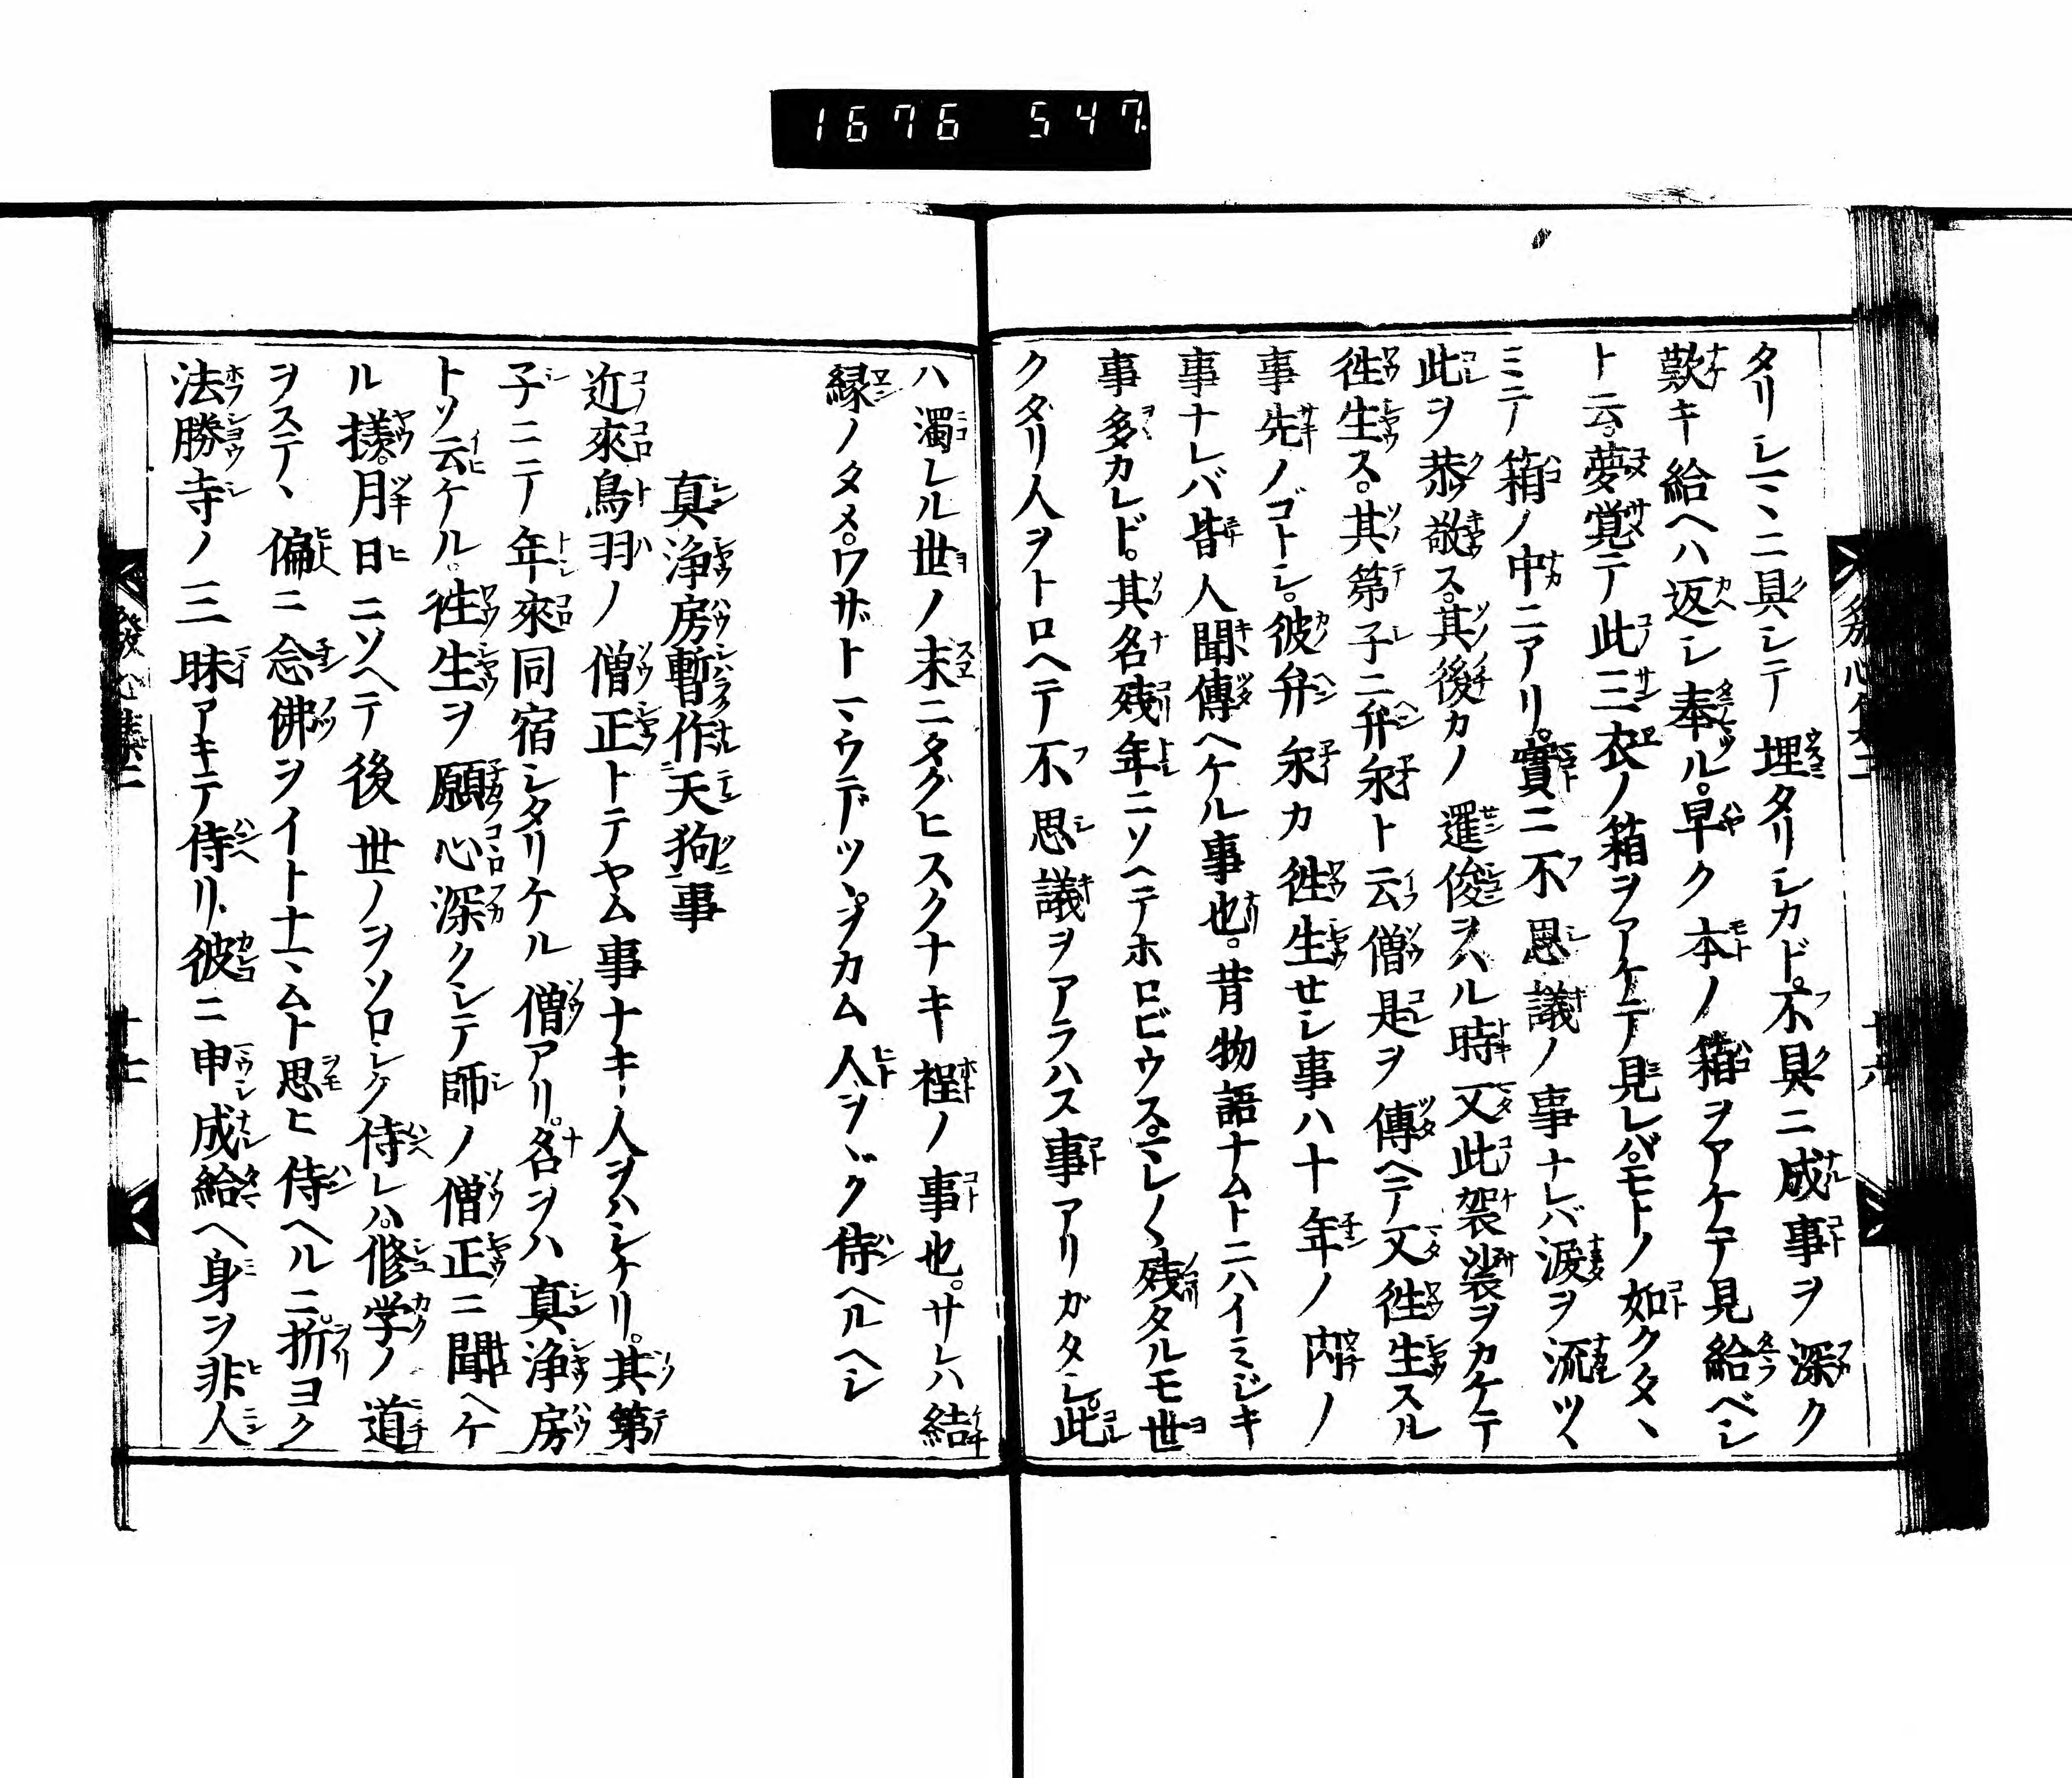 1676 547
タリシマヽニ具シテ埋タリシカド。不具ニ成事ヲ深ク
歎キ給ヘハ返シ奉ル。早ク本ノ箱ヲアケテ見給ベシ
ト云。夢覚テ此三衣ノ箱ヲアケテ見レバ。モトノ如クタヽ
ミテ箱ノ中ニアリ。實ニ不思議ノ事ナレバ涙ヲ流ツヽ
此ヲ恭敬ス。其後カノ暹俊ヲハル時又此袈裟ヲカケテ
徃生ス。其第子ニ弁永ト云僧是ヲ傳ヘテ又徃生スル
事先ノゴトシ。彼弁永カ徃生セシ事ハ十年ノ内ノ
事ナレバ皆人聞傳ヘケル事也。昔物語ナムトニハイミジキ
事多カレド。其名残年ニソヘテホロビウス。マレ〳〵残タルモ世
クダリ人ヲトロヘテ不思議ヲアラハス事アリガタシ。此
ハ濁レル世ノ末ニタグヒスクナキ程ノ事也。サレハ結
縁ノタメ。ワザトマウデツヽ。ヲカム人ヲヽク侍ヘルヘシ
真浄房暫作天狗事
近來鳥羽ノ僧正トテヤム事ナキ人ヲハシケリ。其第
子ニテ年來同宿シタリケル僧アリ。名ヲハ真浄房
トソ云ケル。徃生ヲ願心深クシテ師ノ僧正ニ聞ヘケ
ル樣。月日ニソヘテ後世ノヲソロシク侍レハ。修学ノ道
ヲステヽ偏ニ念佛ヲイトナマムト思ヒ侍ヘルニ。折ヨク
法勝寺ノ三昧アキテ侍リ。彼ニ申成給ヘ身ヲ非人
發心集二
十七